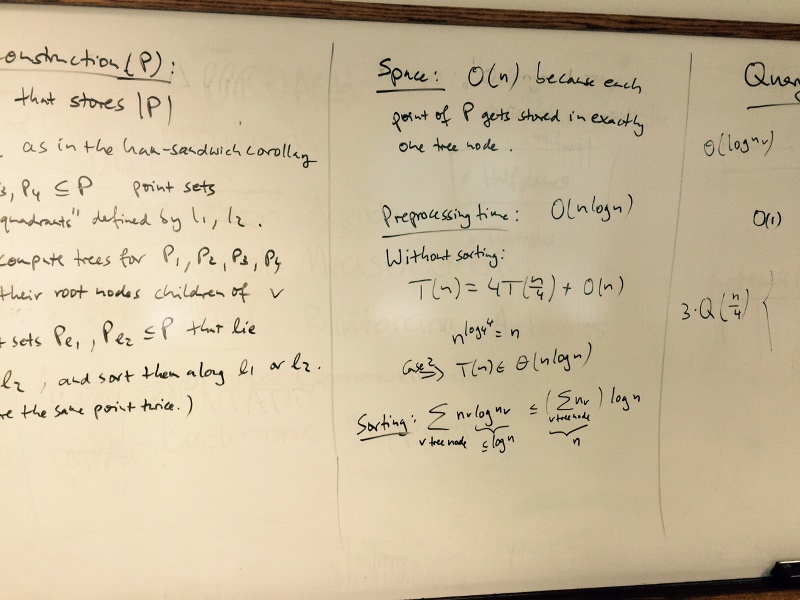 onstruction(P):
that stores |P|
as in the ham-sandwich corollary
3, P4 ⊆ P point sets
quadrants" defined by l1, l2.
compute trees for P1, P2, P3, P4
their root nodes children of v
sets Pe1, Pe2 ⊆ P that lie
l2, and sort them along l1 or l2.
re the same point twice.)
Space: O(n) because each
point of P gets stored in exactly
one tree node.
Preprocessing time: O(n log n)
Without sorting:
T(n) = 4T(n/4) + O(n)
n^log4 4 = n
Case 2 ⇒ T(n) ∈ Θ(n log n)
Sorting: ∑ nv log nv ≤ (∑ nv) log n
v tree node ≤ log n v tree node n
Quer
O(log nv)
O(1)
3·Q(n/4) {